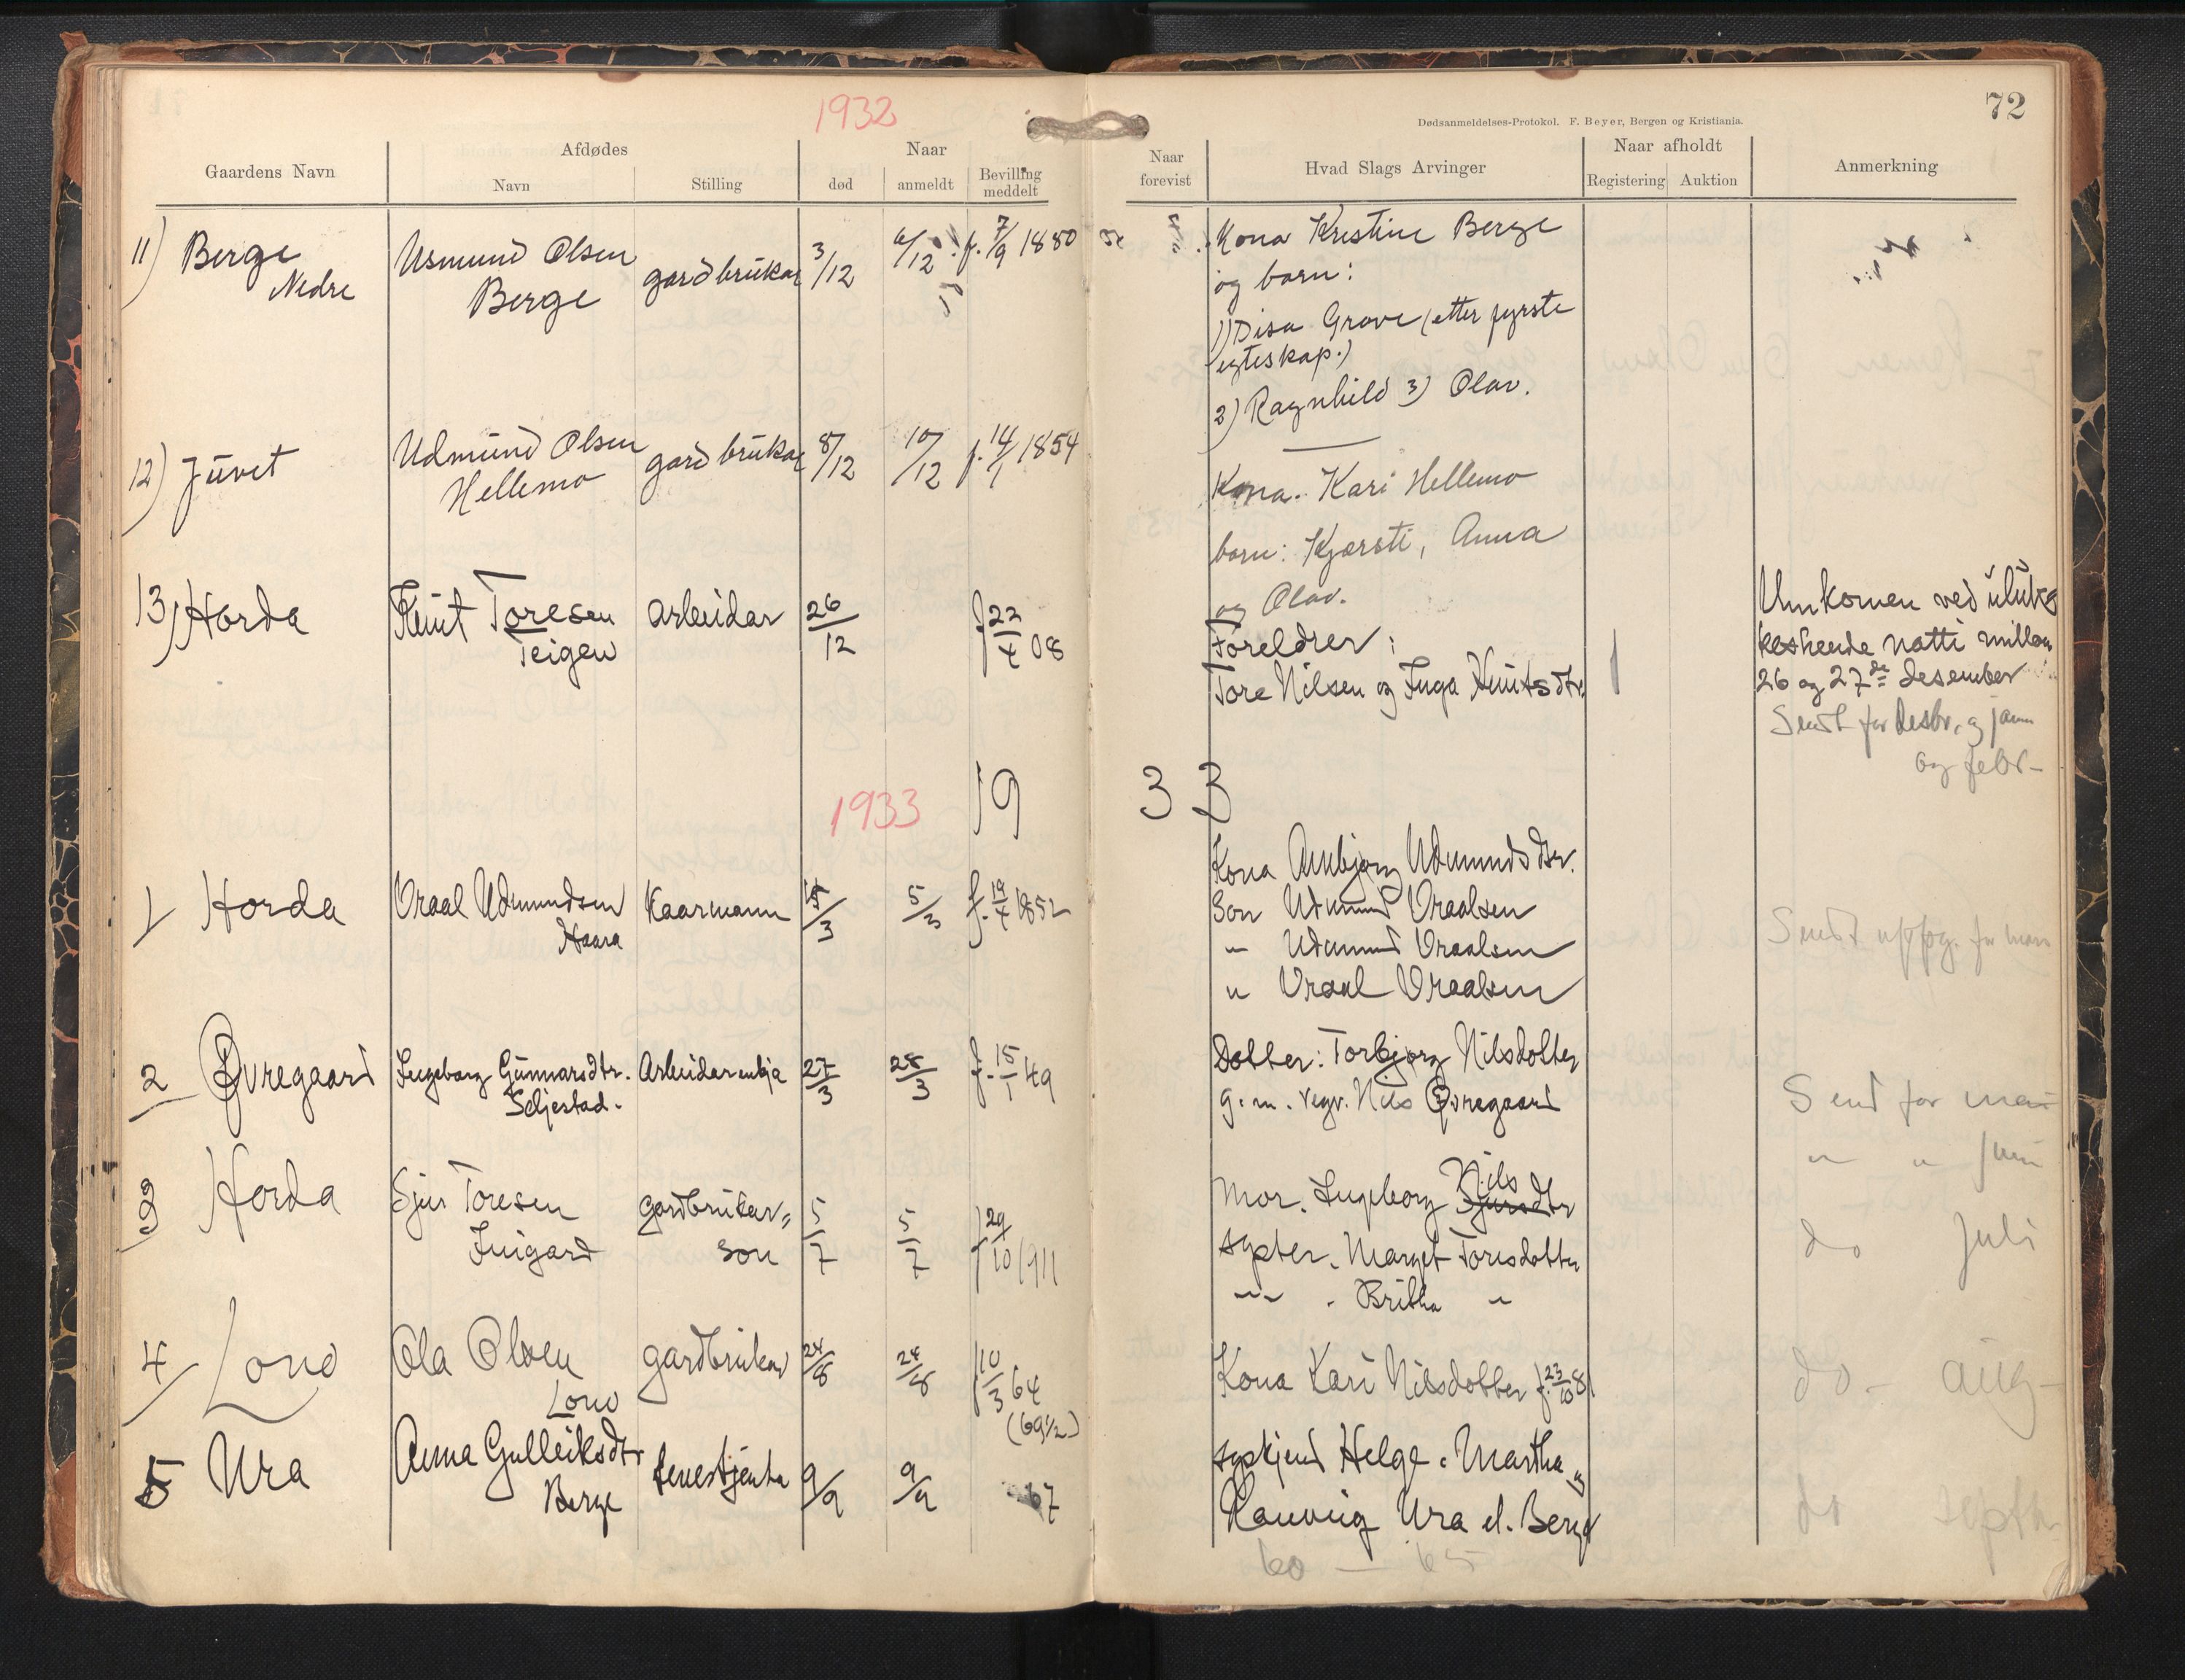 1932
72
Dødsanmeldelses-Protokol. F. Beyer, Bergen og Kristiania.
Gaardens Navn
Afdødes
Navn
Stilling
Naar
død
anmeldt
Bevilling meddelt
Naar forevist
Hvad Slags Arvinger
Naar afholdt
Registering
Auktion
Anmerkning
11) Berge Asmund Olsen gardbrukar 3/12 6/12 f. 7/9 1880 Kona Kristine Berge
Nedre Berge og born:
1) Disa Grove (etter fyrste
egteskap.)
2) Ragnhild 3) Olav.
12) Juvet Udmund Olsen gardbrukar 8/12 10/12 f. 14/1 1854
Hellemo Kona. Kari Hellemo
born: Kjersti, Anna
og Olav.
13) Horda Knut Toresen arbeidar 26/12 f 22/4 08 Foreldrer:
Teigen Tore Nilsen og Inga Knutsdtr.
Umkomen ved
natti millom
26 og 27de desember
Sendt for desbr. og jan
og febr-
1933
19 33
Kona Ambjørg Udmundsdtr.
1 Horda Vraal Udmundsen Kaarmann 5/3 5/3 f. 19/4 1852 Son Udmund Vraalsen
Haara " Udmund Vraalsen
" Vraal Vraalsen
Sendt uppg. for mars
2 Øvregaard Ingeborg Gunnarsdtr. Arbeidarenkja 27/3 28/3 f. 15/1 49 Dotter: Torbjørg Nilsdotter
Seljestad. g. m. vegv. Nils Øvregaard
Send for mai
" " juni
3 Horda Sjur Toresen gardbrukar= 5/7 5/7 f 29/10 1911 Mor. Ingeborg Nils Sjursdtr
Inigard son syster. Marget Toresdotter
" . Britha "
do juli
4 Lono Ola Olsen gardbrukar 24/8 24/8 f 10/3 64 Kona Kari Nilsdotter f. 23/10 81
Lono (69½)
do - aug-
5 Ura Anna Gulleiksdtr tenestjenta 9/9 9/9 67 syskjend Helge. Martha og
Berge Ranveig Ura el. Berge
do septbr
60 - 65